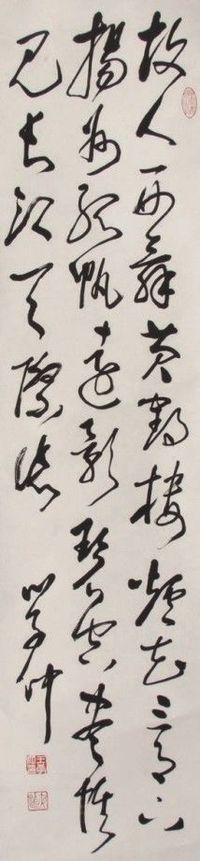 故人西辭黃鶴樓煙花三月下
揚州孤帆遠影碧空盡惟
見長江天際流
學仲